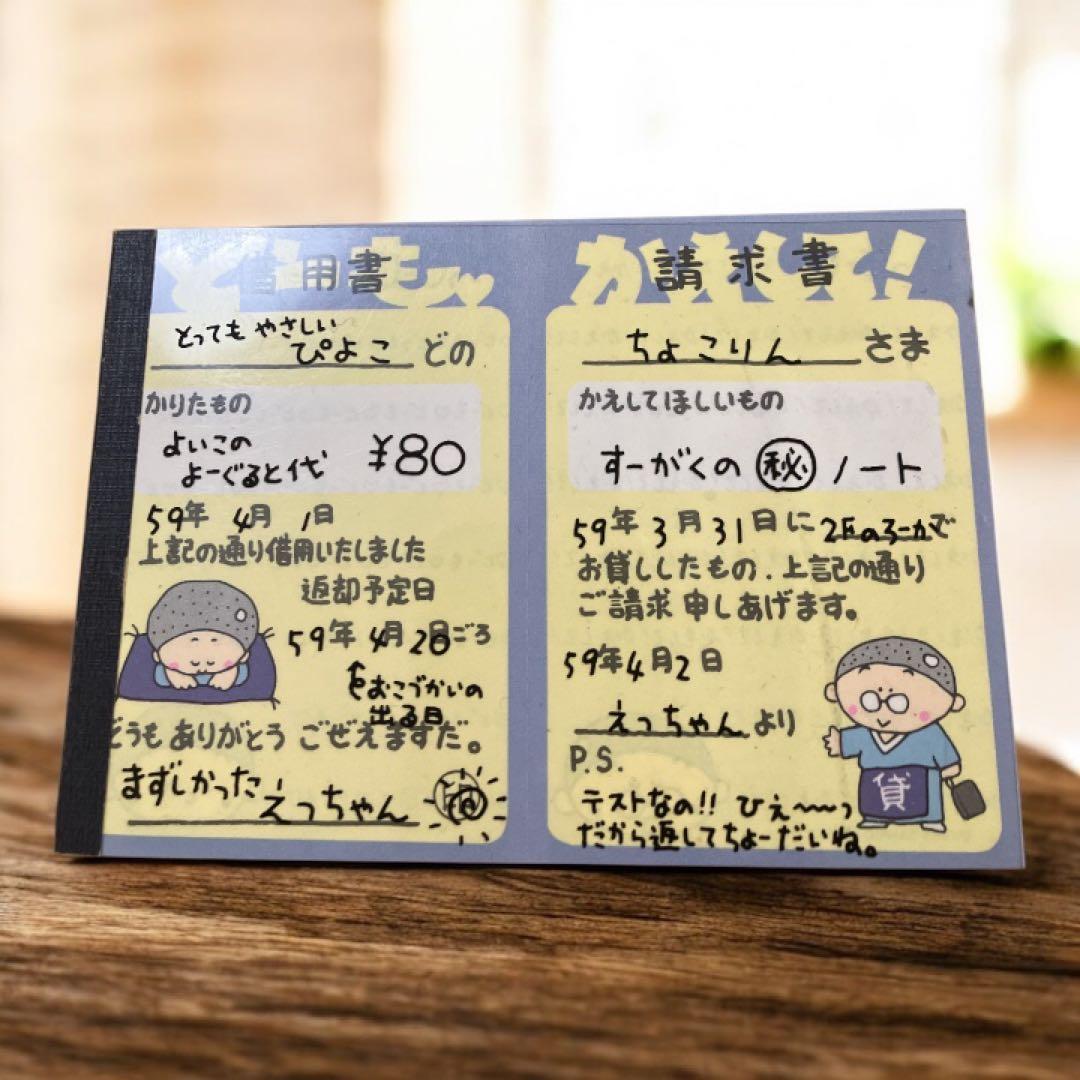 どーもっ
借用書
とってもやさしい
ぴよこ どの
かりたもの
よいこの
よーぐると代 ¥80
59年 4月 1日
上記の通り借用いたしました
返却予定日
59年 4月 28日ごろ
おこづかいの
出る日
どうもありがとう ごぜえますだ。
まずしかった
えっちゃん
かえして!
請求書
ちょこりん さま
かえしてほしいもの
すーがくの ㊙ ノート
59年 3月 31日に 2Fのろーかで
お貸ししたもの、上記の通り
ご請求申しあげます。
59年 4月 2日
えっちゃん より
P.S.
テストなの!! ひぇ〜〜っ
だから返してちょーだいね。
貸